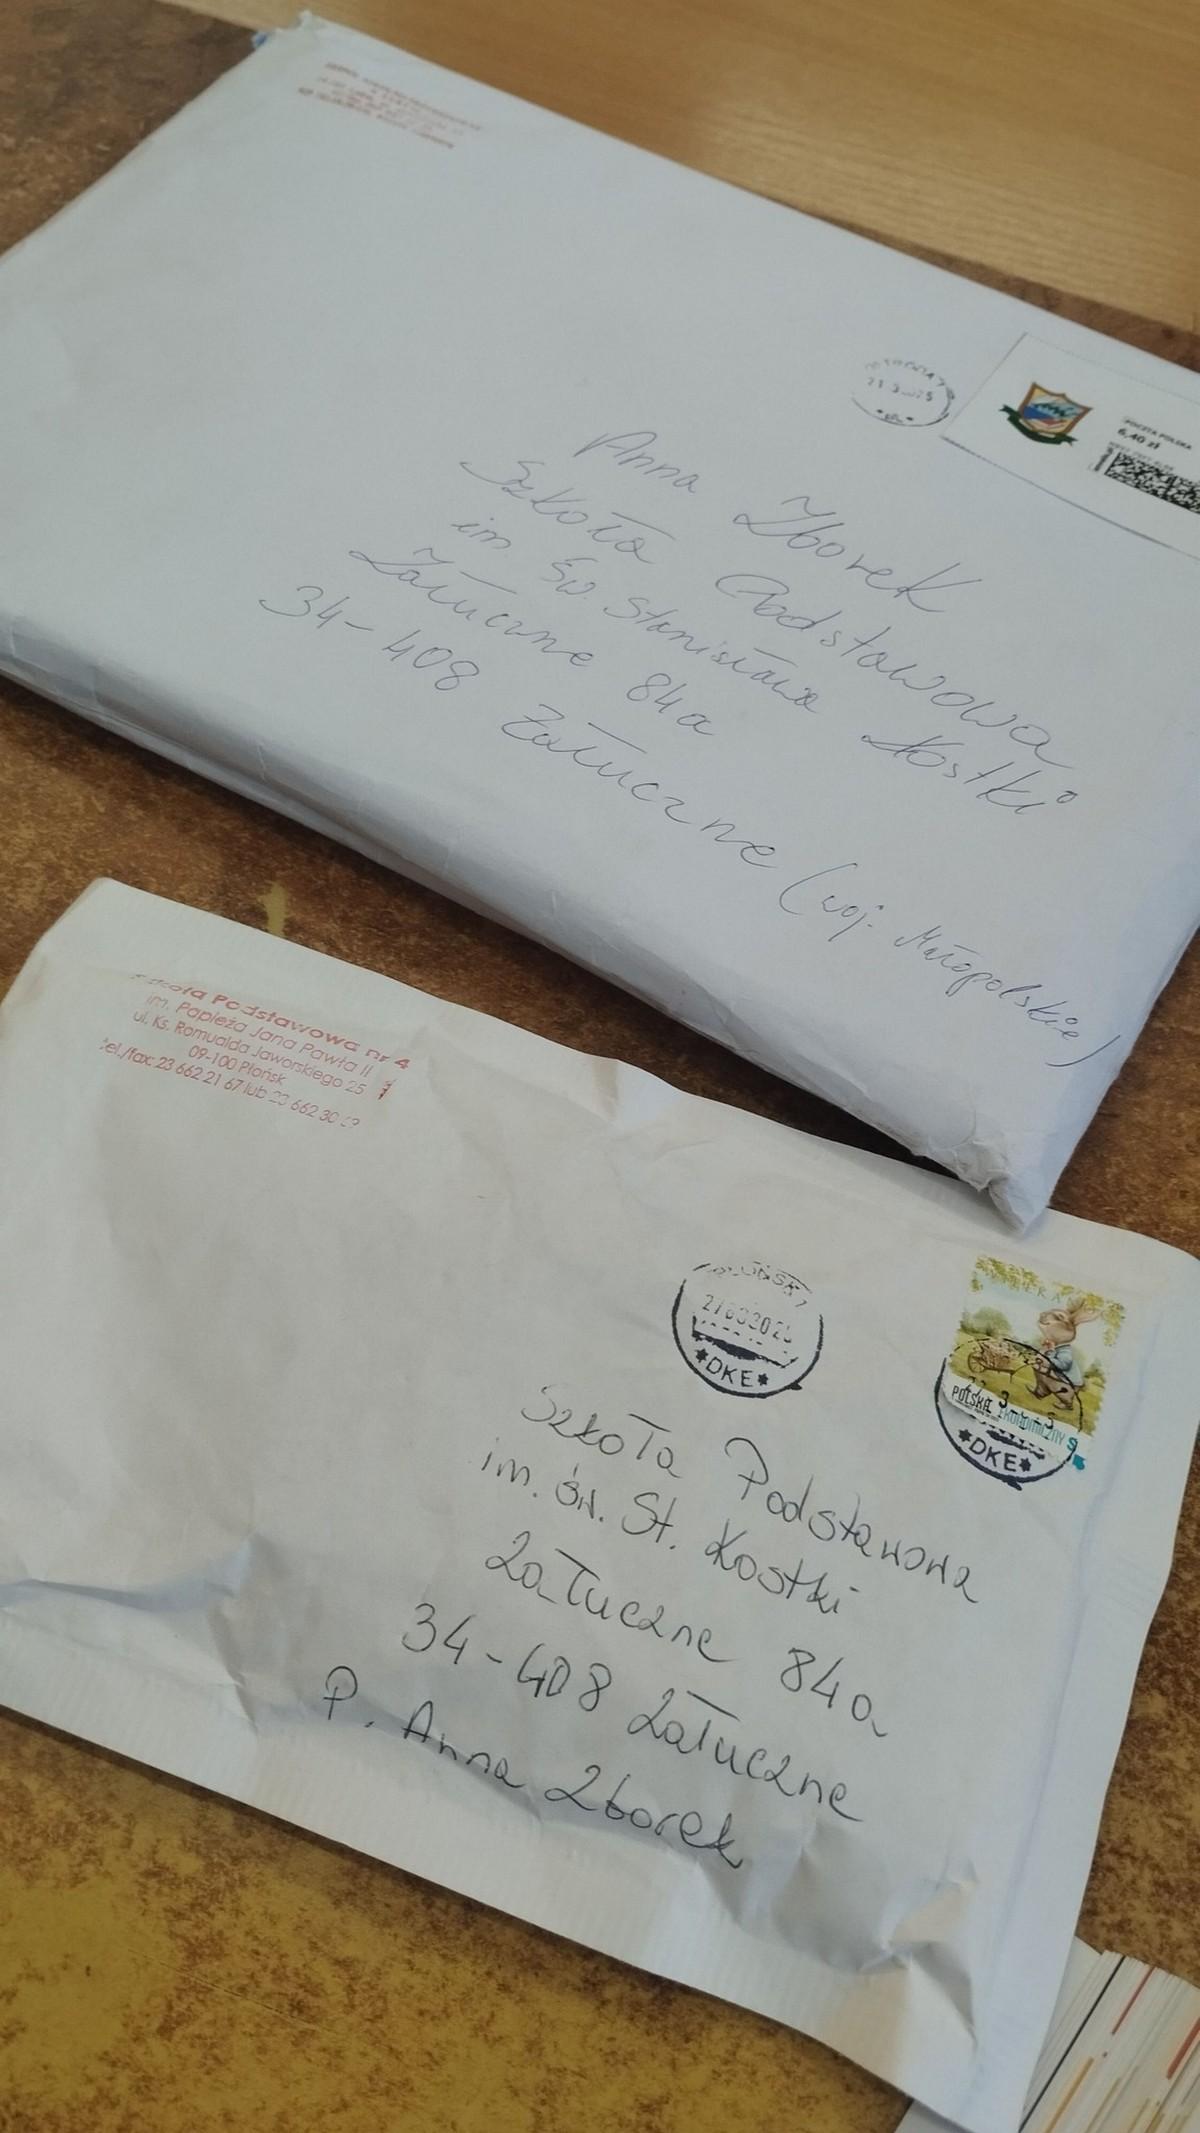 Anna Zborek
Szkoła Podstawowa
im św. Stanisława Kostki
Załuczne 84a
34-408 Załuczne (woj. Małopolskie)
POCZTA POLSKA
6,40 zł
Szkoła Podstawowa nr 4
im. Papieża Jana Pawła II
ul. Ks. Romualda Jaworskiego 25
09-100 Płońsk
tel./fax 23 662 21 67 lub 23 662 30
DKE
POLSKA EKONOMICZNY S
DKE
Szkoła Podstawowa
im. św. St. Kostki
Załuczne 84a
34-408 Załuczne
P. Anna Zborek